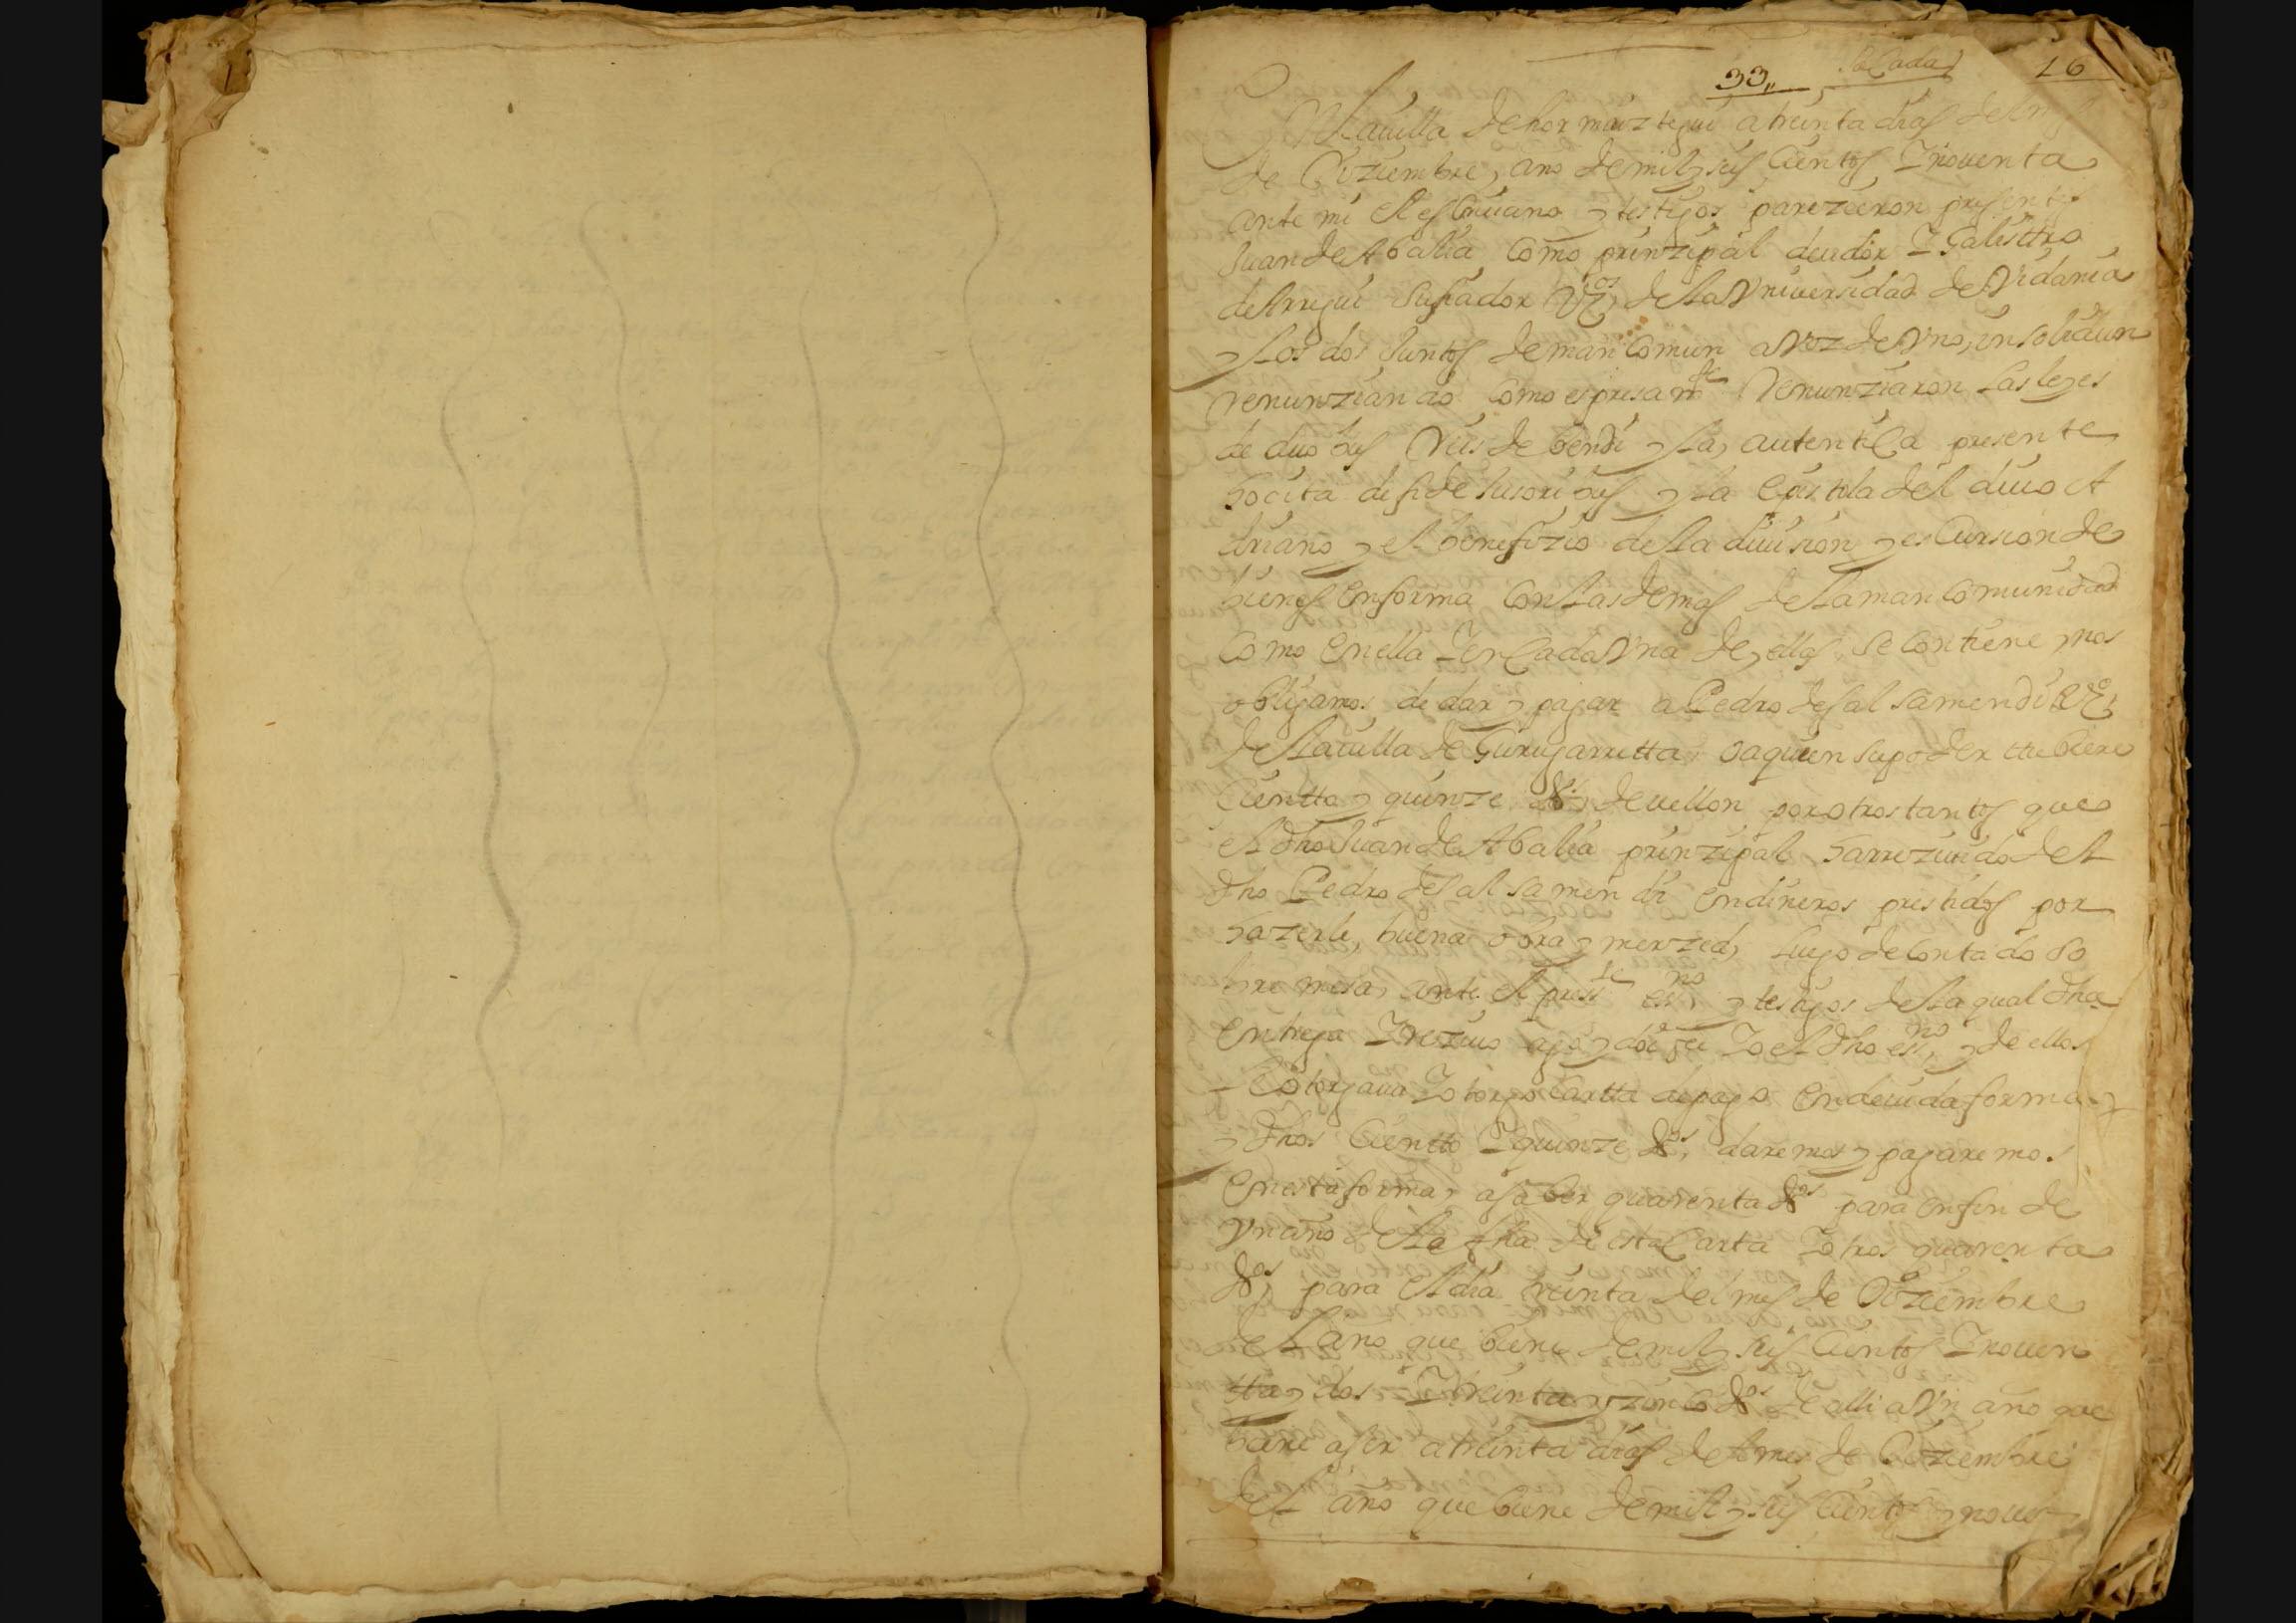 33,, Sacada 16
En la villa de hormaiztegui a treinta dias del mes
de Diziembre, ano de mil y seis Cientos Y nouenta
ante mi el escriuano y testigos parezieron presentes
Juan de Abalia Como prinzipal deudor Y Calisttro
de Arregui su fiador Vzos, de la Vniversidad de Vidania
y los dos Juntos de man Comun a voz de Vno, in solidun
renunziando Como espresamte renunziaron las leyes
de duobus reis de bendi y la, autentiCa presente
hocita de fide Iusoribus y la epistola del diuo A
driano y el benefizio de la diuision y esCursion de
bienes en forma Con las demas de la man Comunidad
Como en ella Y en Cada Vna de, ellas se Contiene, nos
obligamos de dar y pagar a Pedro de salsamendi Vzo,
de la villa de Gurugarretta, o a quien su poder ttubiere
Cientto y quinze ds, de vellon por otros tantos que
el dho Juan de Abalia prinzipal, harrezuido del
dho Pedro de salsamendi en dineros prestados por
hazerle, buena obra y merzed, luego de Contado so
bre mesa, ante el preste esno, y testigos de la qual dha
entrega Y rezuio ago y doi fee Yo el dho esno, y de ellos
le otorgaua Y otorgo Cartta de pago en deuida forma y
y dhos Cientto Y quinze dos, daremos y pagaremos
en esta forma, a saber quarenta dos para en fin de
Vn año de la fha de esta Carta Y otros quarenta
dos, para el dia treinta del mes de Dziembre
del ano que biene de mil y seis Cientos Y nouen
tta y dos Y treinta y zinCo dos de alli a Vn ano que
biene a ser a treinta dias del mes de Diziembre
del año que biene de mil y seis Cientos y nouen